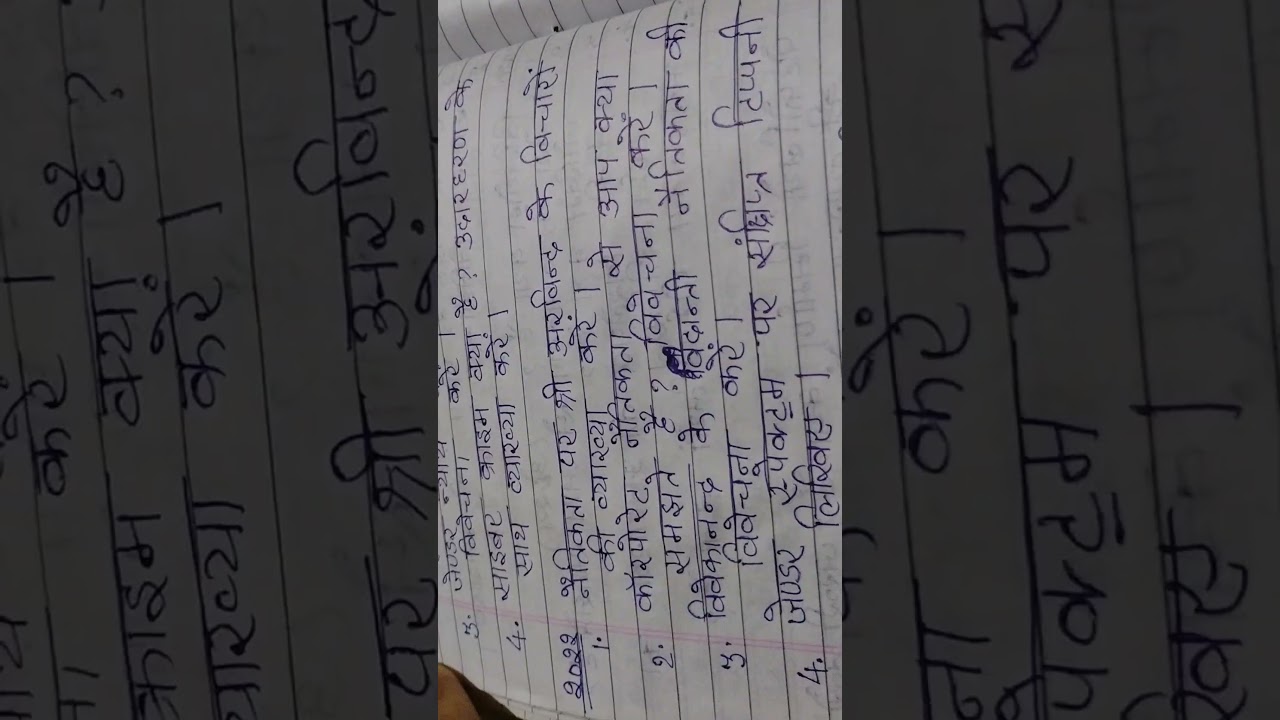 3. जेण्डर न्याय
विवेचना करें ।
4. साइबर क्राइम क्या है ? उदारहरण के
साथ व्याख्या करें ।
2022
1. नैतिकता पर श्री अरविन्द के विचारों
की व्याख्या करें ।
2. कॉरपोरेट नैतिकता से आप क्या
समझते है ? विवेचना करें ।
3. विवेकानन्द के नैतिकता की
विवेचना करें ।
4. जेण्डर स्पेक्ट्रम पर संक्षिप्त टिप्पनी
लिखिए ।